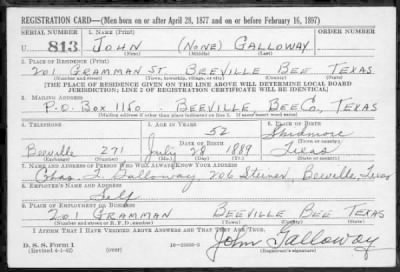 REGISTRATION CARD—(Men born on or after April 28, 1877 and on or before February 16, 1897)
SERIAL NUMBER 1. NAME (Print) ORDER NUMBER
U 813 JOHN (NONE) GALLOWAY
(First) (Middle) (Last)
2. PLACE OF RESIDENCE (Print)
201 GRAMMAN ST. BEEVILLE BEE TEXAS
(Number and street) (Town, township, village, or city) (County) (State)
[THE PLACE OF RESIDENCE GIVEN ON THE LINE ABOVE WILL DETERMINE LOCAL BOARD
JURISDICTION; LINE 2 OF REGISTRATION CERTIFICATE WILL BE IDENTICAL]
3. MAILING ADDRESS
P.O. BOX 1160 - BEEVILLE, BEE CO, TEXAS
[Mailing address if other than place indicated on line 2. If same insert word same]
4. TELEPHONE 5. AGE IN YEARS 6. PLACE OF BIRTH
52 Skidmore
DATE OF BIRTH (Town or county)
Beeville 271 July 28 1889 Texas
(Exchange) (Number) (Mo.) (Day) (Yr.) (State or country)
7. NAME AND ADDRESS OF PERSON WHO WILL ALWAYS KNOW YOUR ADDRESS
Chas. Galloway 206 Steiner, Beeville, Texas
8. EMPLOYER'S NAME AND ADDRESS
Self
9. PLACE OF EMPLOYMENT OR BUSINESS
201 GRAMMAN BEEVILLE BEE TEXAS
(Number and street or R. F. D. number) (Town) (County) (State)
I AFFIRM THAT I HAVE VERIFIED ABOVE ANSWERS AND THAT THEY ARE TRUE.
D. S. S. Form 1
(Revised 4-1-42) (over) John Galloway
(Registrant's signature)